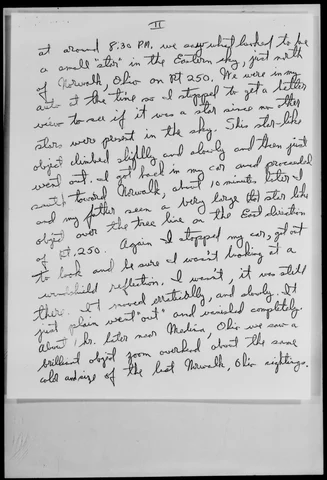 II
at around 8:30 PM, we saw what looked to be
a small "star" in the Eastern sky, just north
of Norwalk, Ohio on Rt 250. We were in my
auto at the time so I stopped to get a better
view to see if it was a star since no other
stars were present in the sky. This star-like
object climbed slightly and slowly and then just
went out. I got back in my car and proceeded
south toward Norwalk, about 10 minutes later I
and my father seen a very large star like
object over the tree line on the East direction
of Rt, 250. Again I stopped my car, got out
to look and be sure I wasn't looking at a
windshield reflection. I wasn't, it was still
there. It moved erratically, and slowly. It
just plain went "out" and vanished completely.
About hr. later near Medina, Ohio we saw a
brilliant object zoom overhead about the same
color and size of the last Norwalk, Ohio sightings.